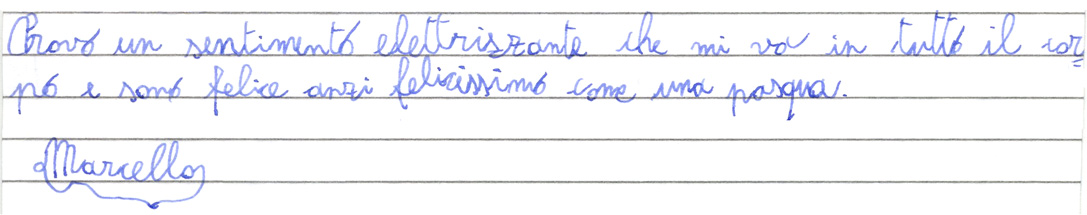 Provo un sentimento elettriszante che mi va in tutto il cor=
po e sono felice anzi felicissimo come una pasqua.
Marcello